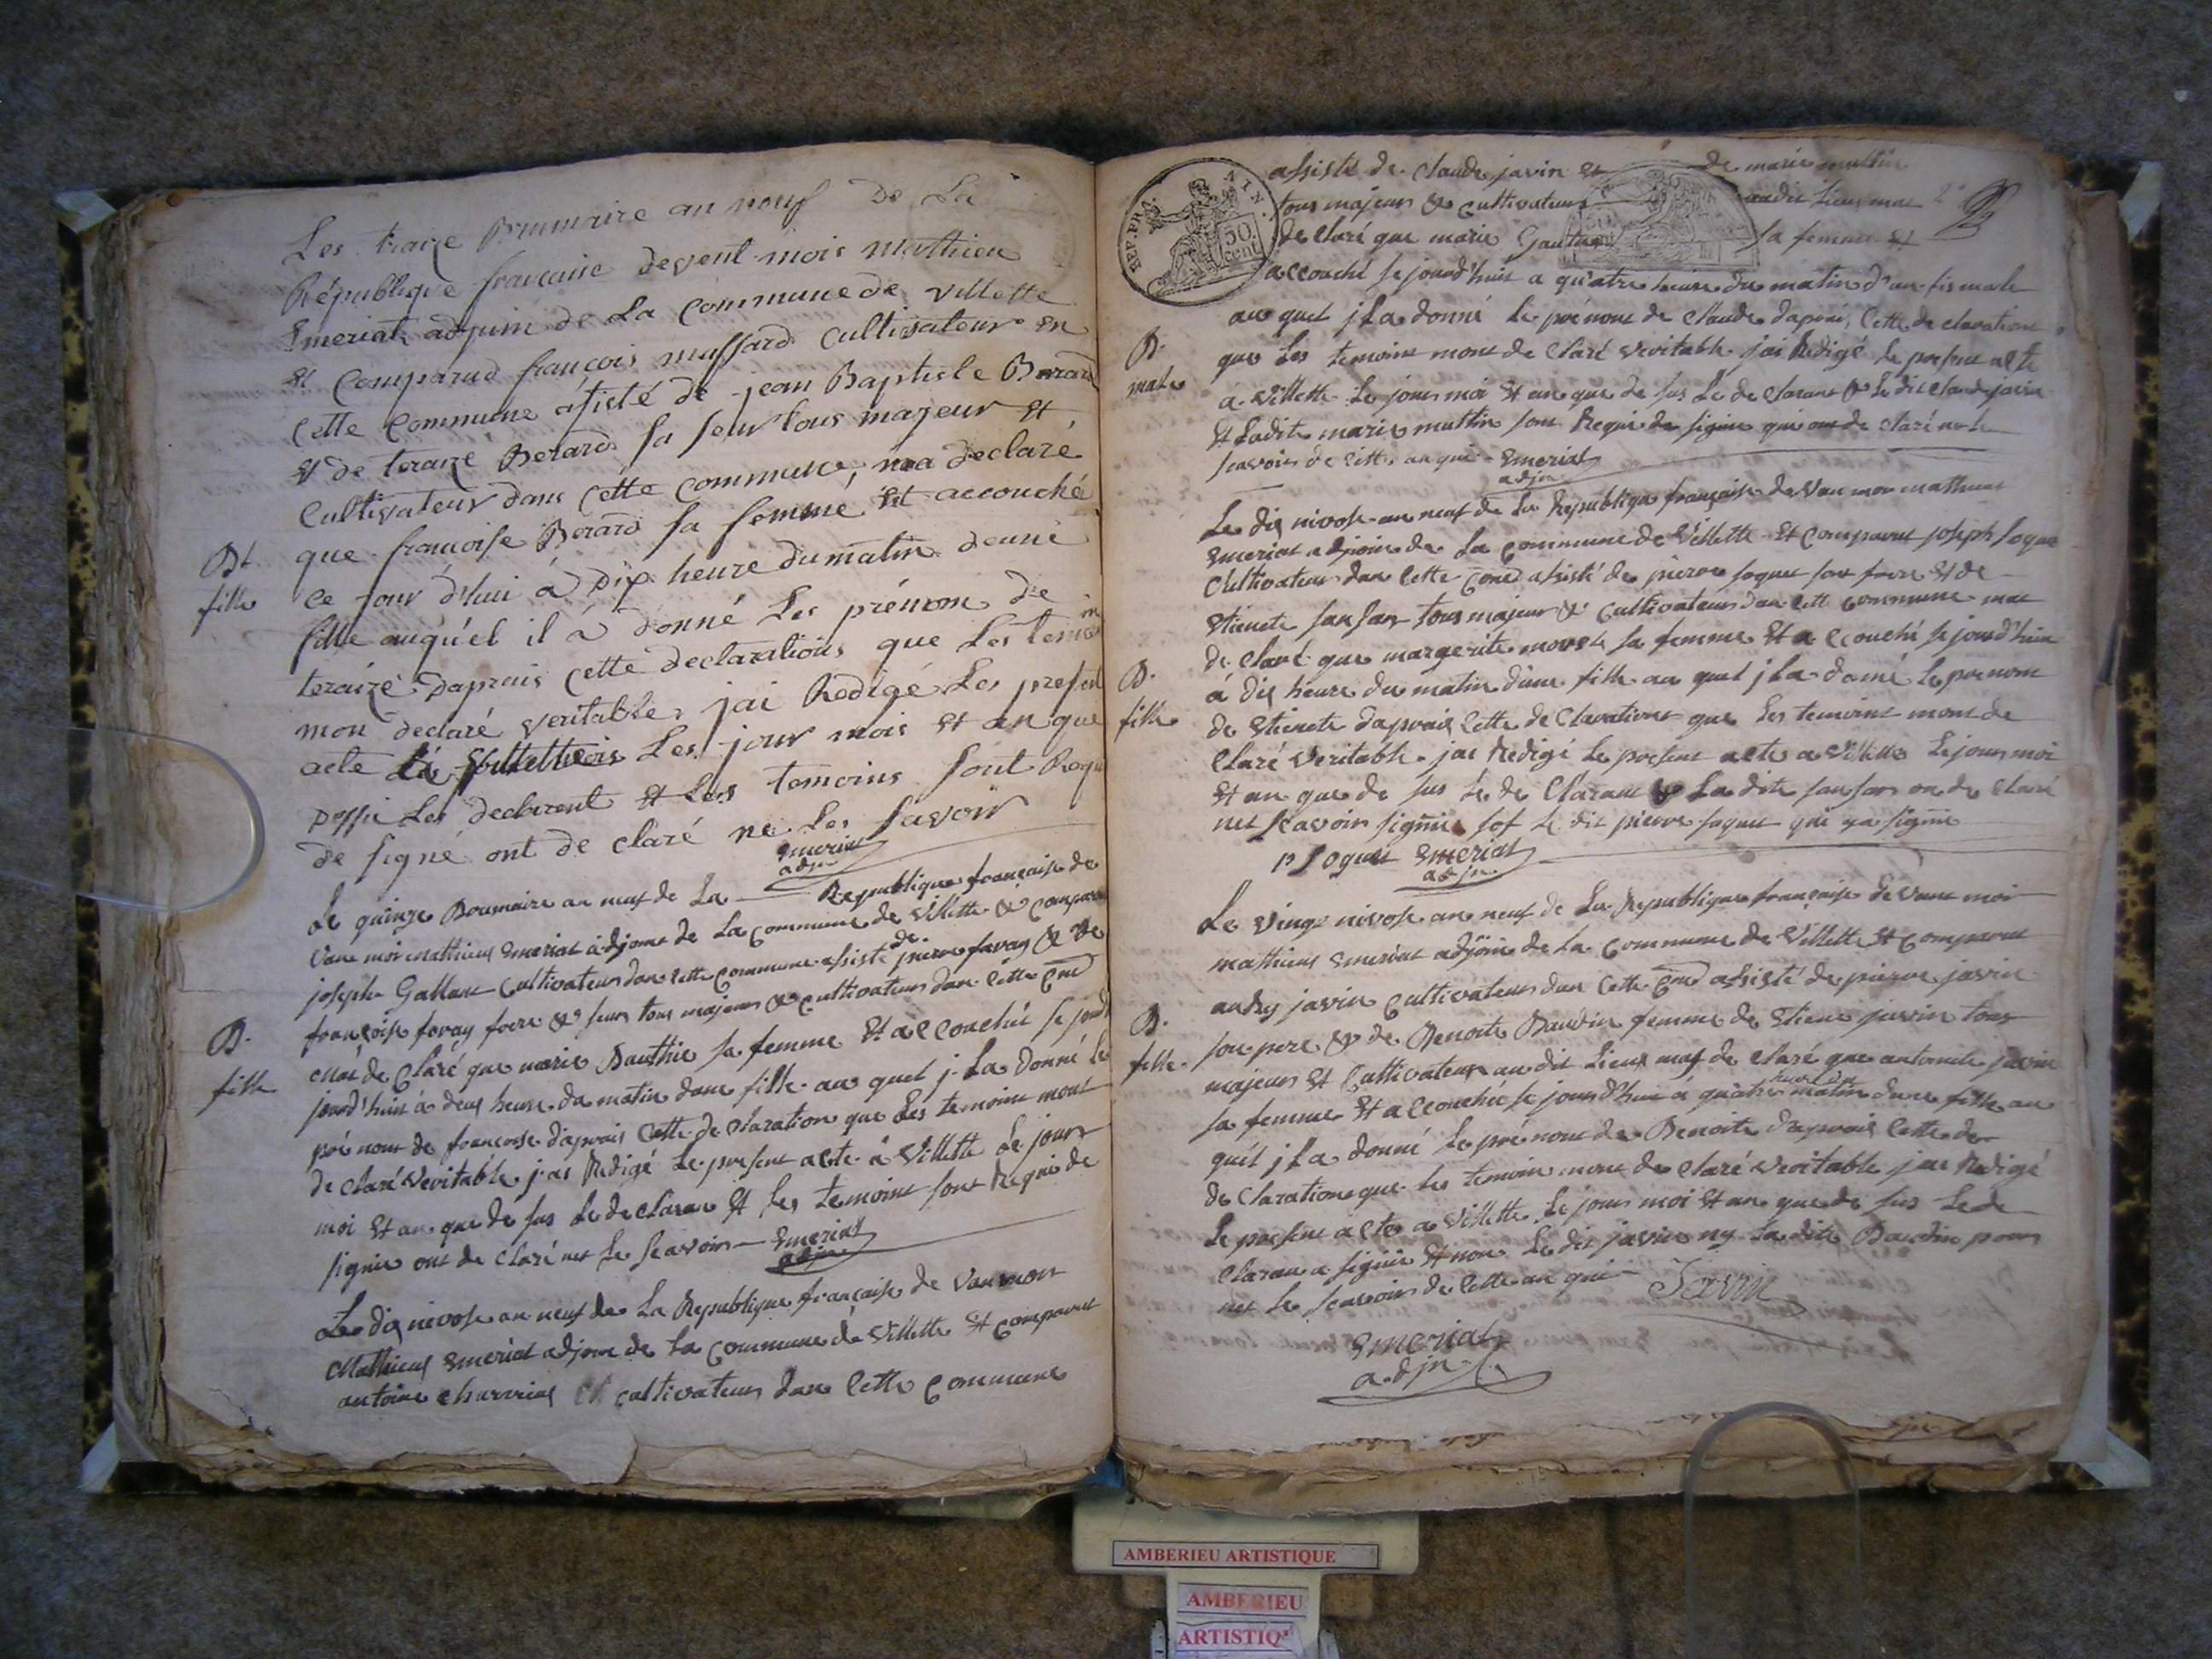 Les traize Brumaire an neuf de La
République francaise devent mois mathieu
Emeriat adjoin de La Commune de Villette
Et Comparud francois massard Cultivateur En
Cette Commune assisté de jean Baptiste Berard
Et de teraize Berard sa seur tous majeur Et
Cultivateur dans Cette commune, ma declaré
que francoise Berard sa femme Est accouché
Bt
fille
ce jour d'hui à Dix heure du matin deune
fille auquel il à donné Les prénom de
teraize daprais cette declarations que Les temoin
mon declaré veritable, jai Redigé Les presend
acte Les jour mois Et an que
Les declarent Et Les temoins sont Requi
de signé ont de claré ne Les savoir
Emeriat
adjn
Le quinze Brumaire an neuf de La Republique française de
vant moi mathieu Emeriat adjoint de La Commune de Villette & comparu
joseph Galland Cultivateur dans cette Commune assisté de pierre favay & de
françoise favay frere & seur tous majeurs & cultivateurs dans cette Cne
B.
fille
mat de Claré que marie Bauthie sa femme Et accouchée
jourd'huit à deux heure du matin dune fille au quel j La donné Le
pré nom de francoise daprais Cette de claration que Les temoint mont
de claré veritable jai Redigé Le present acte à Villette Le jour
moi Et an que de sus Le de claran Et Les temoint sont Requi de
signie ont de claré net Le scavoir Emeriat
adjn
Le dix nivose an neuf de La Republique française de van moi
Mathieu Emeriat adjoin de La Commune de Villette Et comparut
antoine cultivateur dans Cette Commune
REP. FRA.
AIN.
50
cent
assisté de Claude javin Et de marie muttin
tous majeurs & cultivateurs audit Lieux mat
de claré que marie sa femme Et
accouché se jourd'huit a quatre heure du matin d'un fis male
au quel j La donné Le prénom de Claude daprai Cette de claration
B.
male
que Les temoint mont de Claré veritable jai Redigé Le present acte
à Villette Le jour moi Et an que de sus Le de clarant & Le dit Claude javin
Et Ladite marie muttin sont Requi de signie qui ont de claré ne le
scavoir de cette an qui Emeriat
adjn
Le dix nivose an neuf de La Republique française de van moi mathieu
Emeriat adjoin de La Commune de Villette Et Comparut joseph soquet
Cultivateur dans Cette Cne assisté de pierre soquet son frere Et de
Etienete sansan tous majeur & cultivateurs dans cette commune mat
de claré que margerite morel sa femme Et accouché se jourd'huit
B.
fille
à dix heure du matin d'une fille au quel j La donné Le prenom
de Etienete daprais Cette de Claration que Les temoint mont de
Claré veritable jai Redigé Le present acte a Villette Le jour moi
Et an que de sus Le de Clarant & La dite sansan on de claré
net scavoir signie sof Le dit pierre soquet qui ya signie
P Soquet Emeriat
adjn
Le vingt nivose an neuf de La Republique française de vant moi
mathieu Emeriat adjoin de La Commune de Villette Et Comparut
andry javin Cultivateur dans Cette Cne assisté de pierre javin
B.
fille
son pere & de Benoite Baudin femme de Etiene javin tous
majeurs Et Cultivateurs au dit Lieux mat de claré que antonete javin
sa femme Et accouché se jourd'huit à quatre heure du matin dune fille au
quél j La donné Le pré nom de Benoite daprais Cette de
de Claration que Les temoin mont de claré veritable jai Redigé
Le present acte a Villette Le jour moi Et an que de sus Le de
Claran a signie Et non Le dit javin ny La dite Baudin pour
net Le scavoir de Cette an qui Javin
Emeriat
adjn
AMBERIEU ARTISTIQUE
AMBERIEU
ARTISTIQ